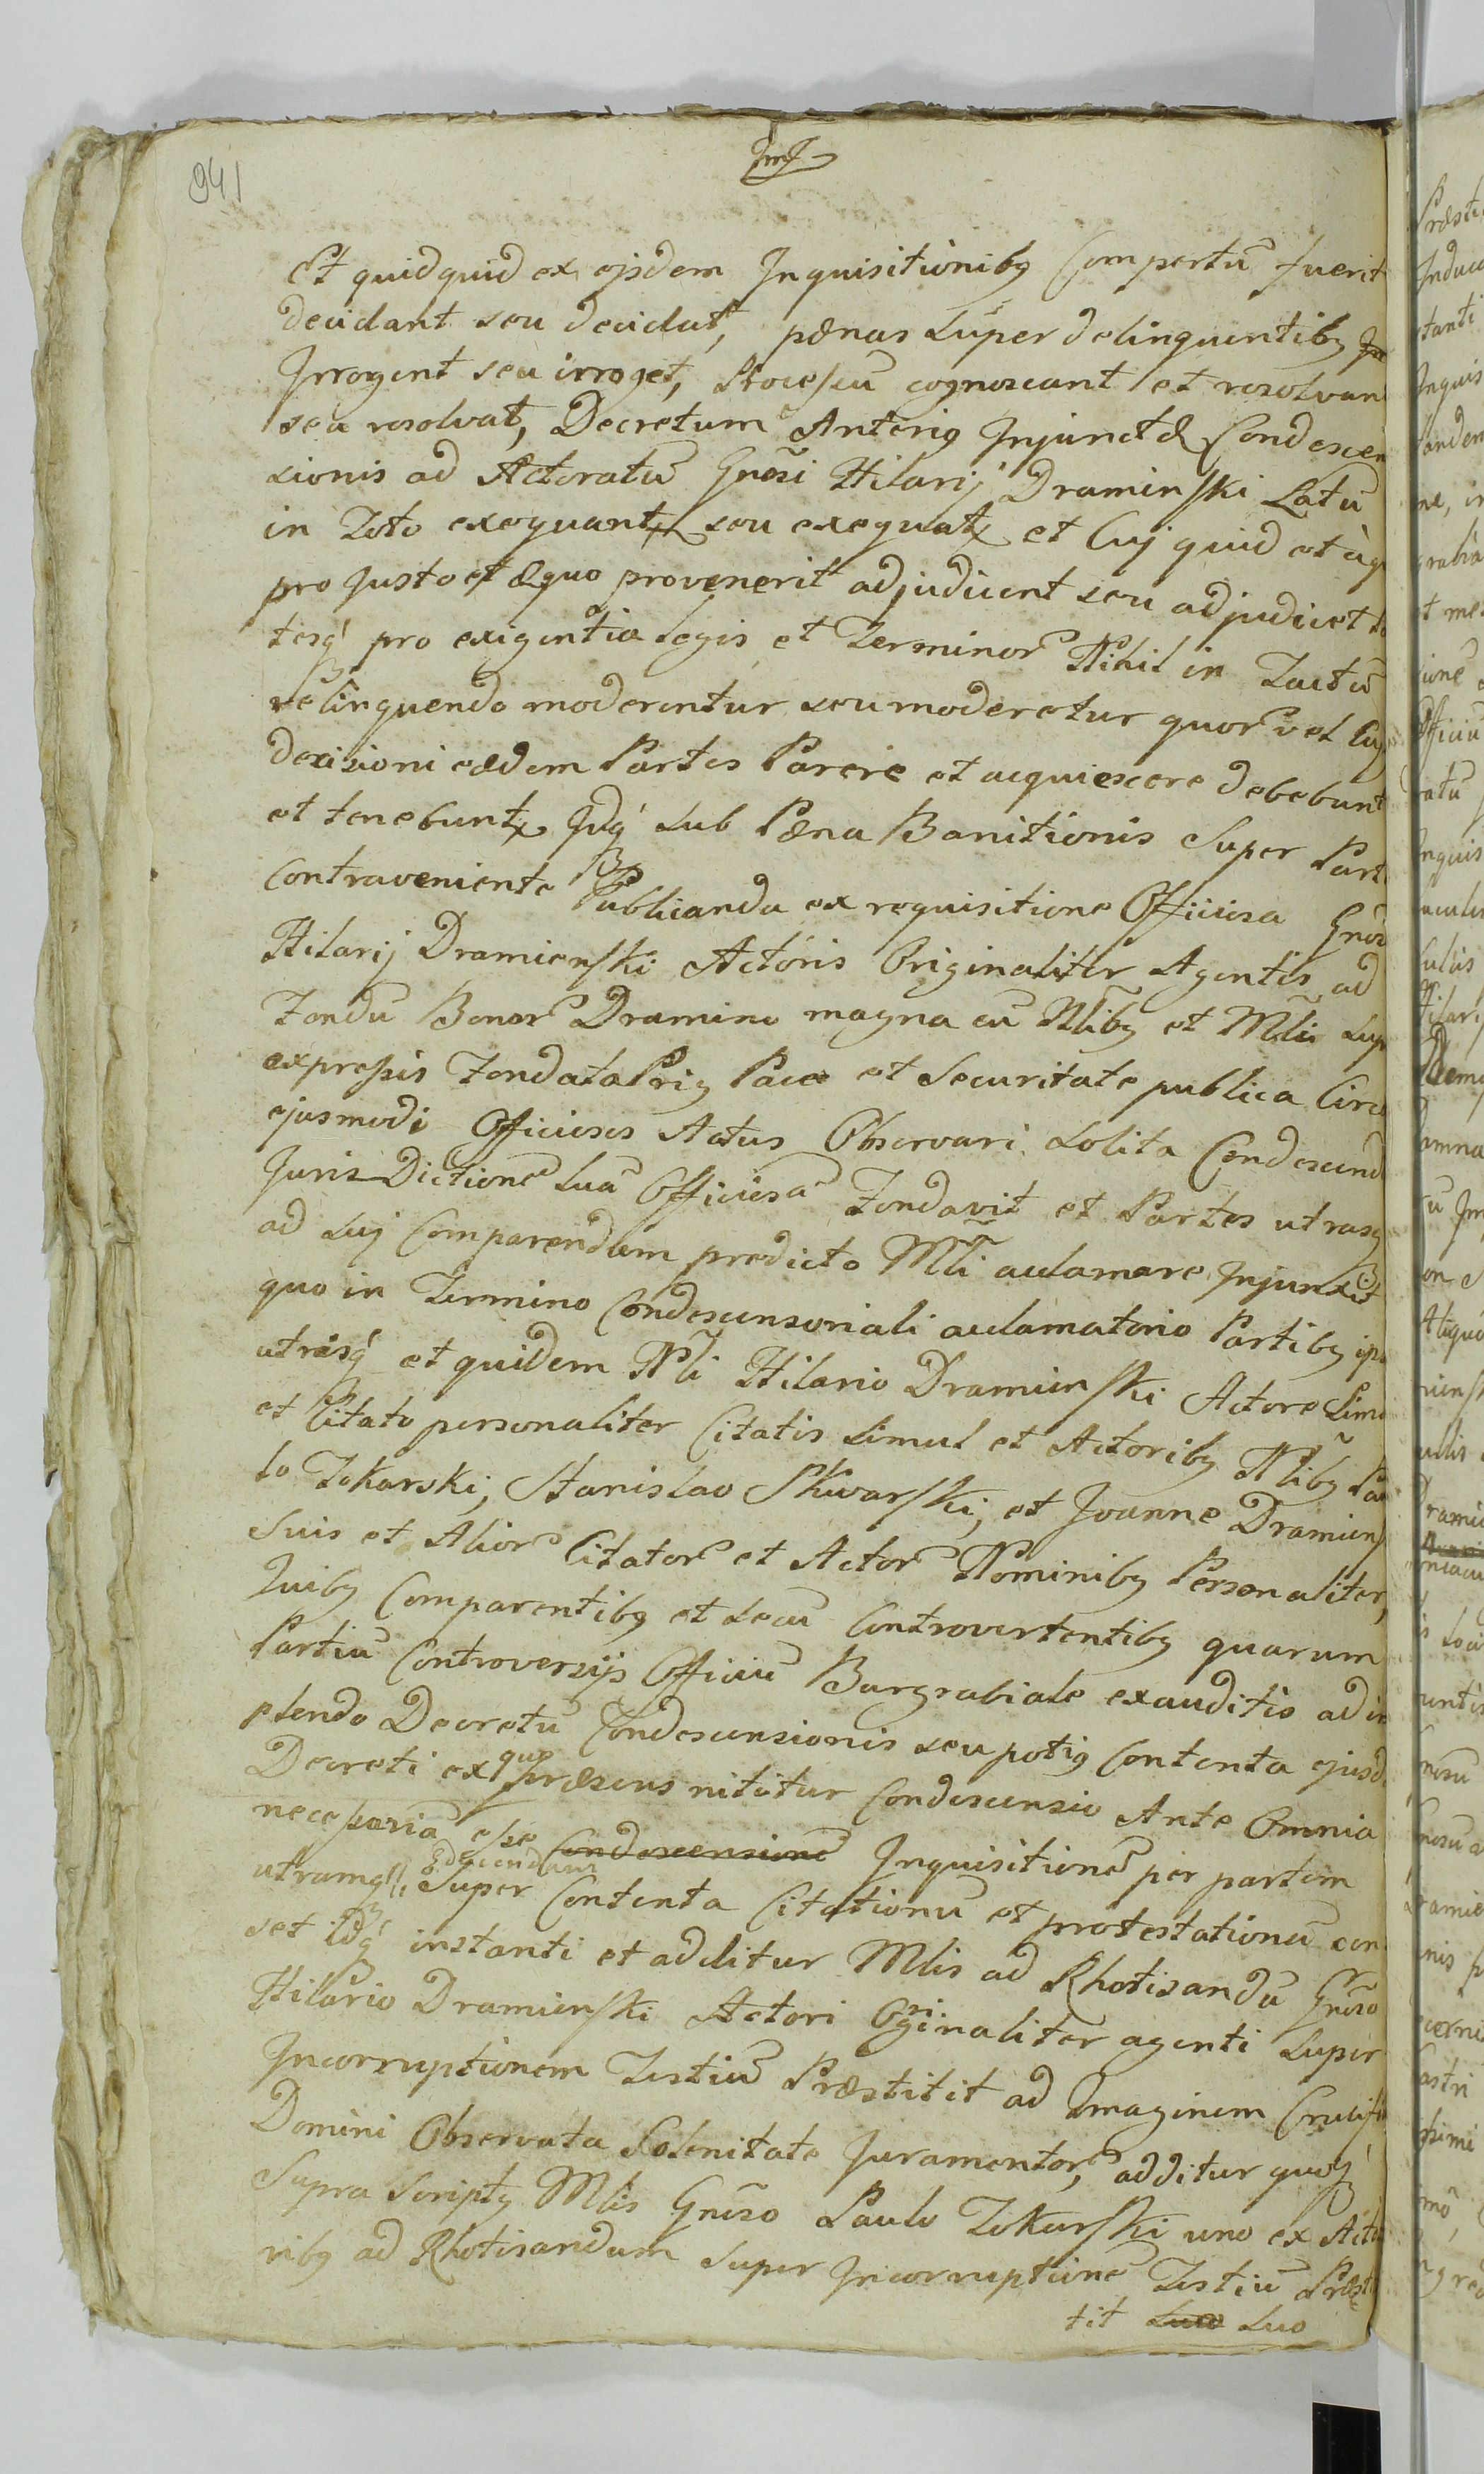 941
Et quidquid ex ejsdem Inquisitionibq Compertū fuerit
decidant seu decidat, pænas super delinquentibq
Irrogent seu irroget, Processū cognoscant et resolvant
seu resolvat, Decretum Anteriq Injunctæ Condescen
sionis ad Actoratū Gnōsi Hilarij Draminski Latū
in Toto exequantr seu exequatr et Cuj quid et
pro Justo et æquo provenerit adjudicent seu adjudicet
tesq́ pro exigentia legis et Terminor Nihil in Tactū
relinquendo moderentur seu moderetur quor vel Cujq
decisioni eædem Partes Parere et acquiescere debebunt
et tenebuntr Idq́ sub Pæna Banitionis Super Parte
Contraveniente Publicanda ex requisitione Officiosa Gnōs
Hilarij Dramienski Actoris Originaliter Agentis ad
Fondū Bonor Dramino magna cū Nlibq et Mlū sup
expressis Fondata Priq Pace et Securitate publica Circa
ejusmodi Officiosos Actus Observari Solita Condescend
Juris-Dictionē suā Officiosā Fondavit et Partes utrasq
ad suj Comparendum predicto Mlī aclamare Injunxit
quo in Termino Condescensoriali aclamatorio Partibq ips
utrisq́ et quidem Nlī Hilario Dramienski Actore Simul
et Citato personaliter Citatis simul et Actoribq Nlibq Pau
lo Tokarski, Stanislao Skwarski, et Joanne Dramiens
Suis et Alior Citator et Actor Nominibq Personaliter,
Quibq Comparentibq et secū Controvertentibq quarum
Partiū Controversijs Officiū Burgrabiale exauditis ad im
plendo Decretū Condescensionis seu potiq Contenta ejusd
Decreti ex quo præsens nititur Condescensio Ante Omnia
necessariā esse Condescensionē Inquisitionē per partem
utramq́ Educendam Super Contenta Citationū et protestationū cen
set idq́ instanti et additur Mlis ad Rhotisandū Gnōso
Hilario Dramienski Actori Originaliter agenti super
Incorruptionem Testiū Præstitit ad Imaginem Crucifi
Domini Observata Solenitate Juramentor, additur quoq́
Supra Scriptq Mlis Gnōso Paulo Tokarski uno ex Acto
ribq ad Rhotisandum super Incorruptionē Testiū Præsti
tit suo suo